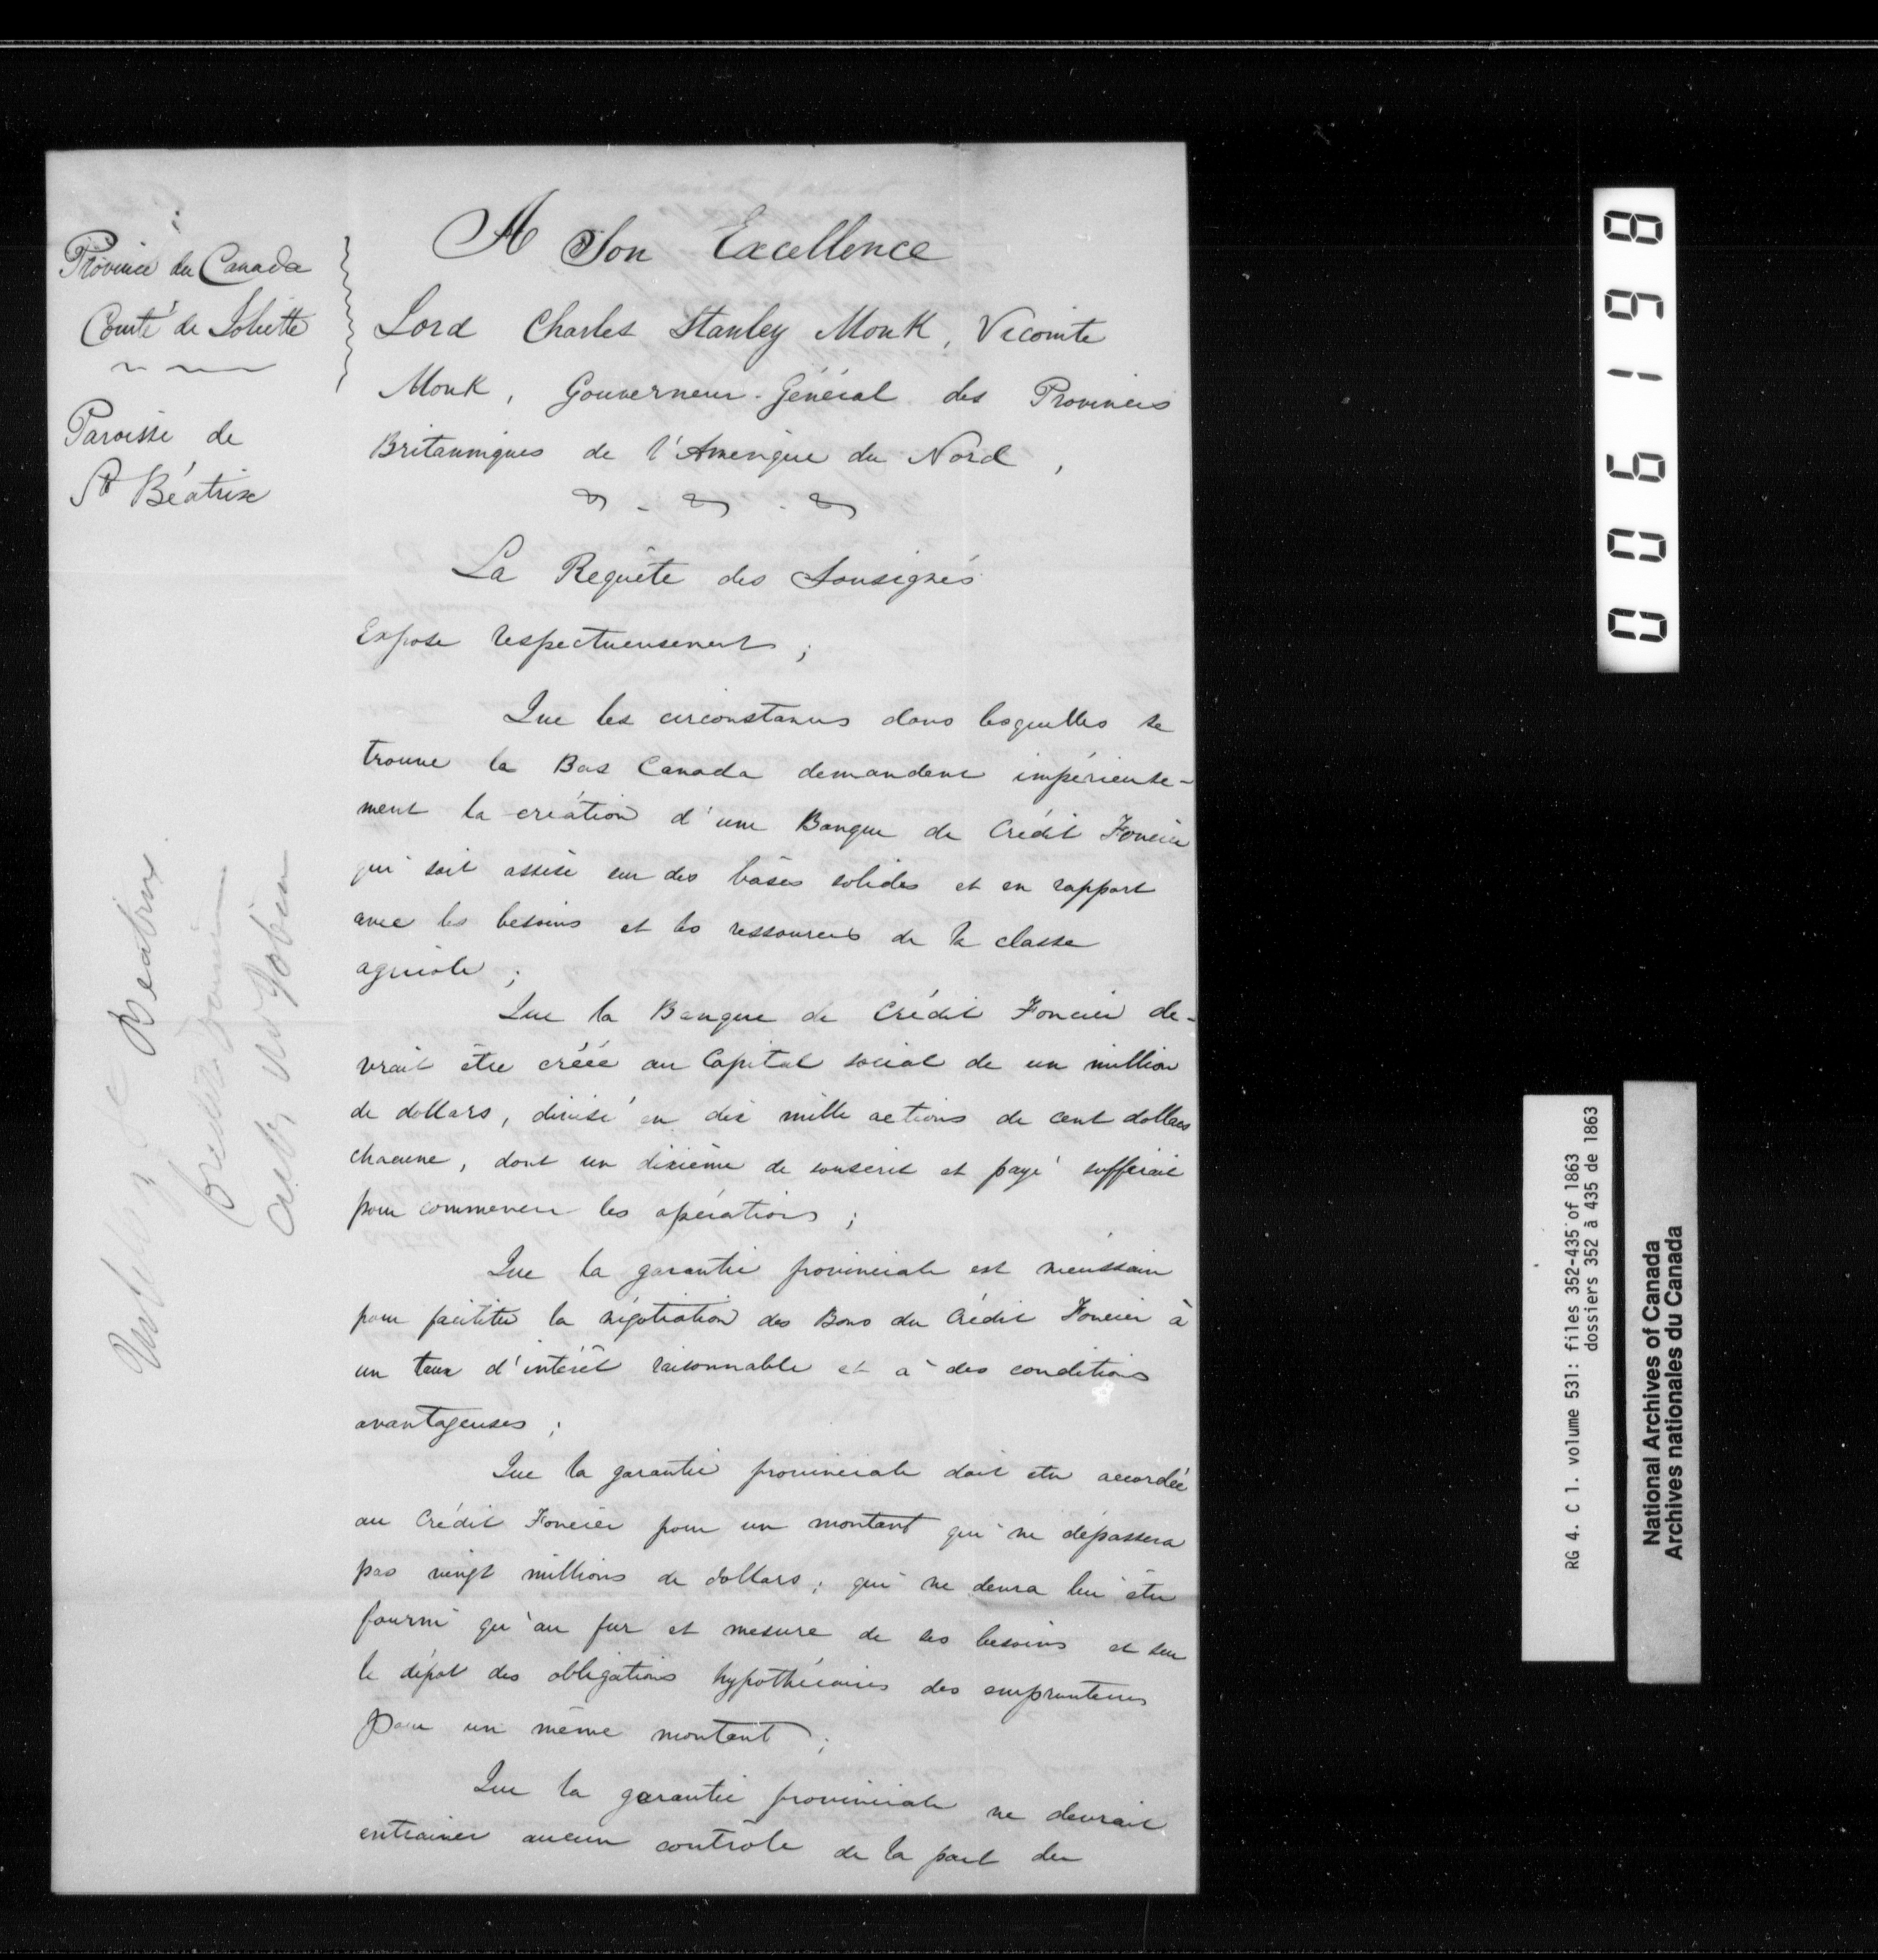 Province du Canada
Comté de Joliette
Paroisse de
Ste Béatrix
A Son Excellence
Lord Charles Stanley Monk, Vicomte
Monk, Gouverneur-Général des Provinces
Britanniques de l'Amérique du Nord,
La Requête des Sousignés
Expose respectueusement ;
Que les circonstances dans lesquelles se
trouve le Bas Canada demandent impérieuse-
ment la création d'une Banque de Crédit Foncier
qui soit assise sur des bâses solides et en rapport
avec les besoins et les ressources de la classe
agricole ;
Que la Banque de Crédit Foncier de-
vrait être créée au Capital social de un million
de dollars, divisé en dix mille actions de cent dollars
chacune, dont un dixième de souscrit et payé suffirait
pour commencer les opérations ;
Que la garantie provinciale est nécessaire
pour faciliter la négotiation des Bons du Crédit Foncier à
un taux d'intérêt raisonnable et à des conditions
avantageuses ;
Que la garantie provinciale doit être accordée
au Crédit Foncier pour un montant qui ne dépassera
pas vingt millions de dollars ; qui ne devra lui être
fourni qu'au fur et mesure de ses besoins et sur
le dépot des obligations hypothécaires des emprunteurs
pour un même montant ;
Que la garantie provinciale ne devrait
entrainer aucun contrôle de la part du
Beatrix
006198
RG 4. C 1. volume 531: files 352-435 of 1863
dossiers 352 à 435 de 1863
National Archives of Canada
Archives nationales du Canada